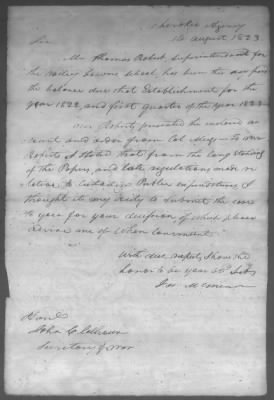 Cherokee Agency
16 August 1823
Sir
Mr Thomas Robert Superintendant for
the Valley Towns School, has been the
the balance due that Establishment for the
year 1822, and first quarter of the year 1823
Mr Roberts presented the enclosed
and from Col Meigs to
I stated that from the long standing
of the Papers, and late regulations made
relative to Public expenditures, I
thought it my duty to submit the case
to you for your decision of which please
advise me of when convenient
With due respect, I have the
honor to be your Obt Servt
Jos McMinn
Honl
John C Calhoun
Secretary of War